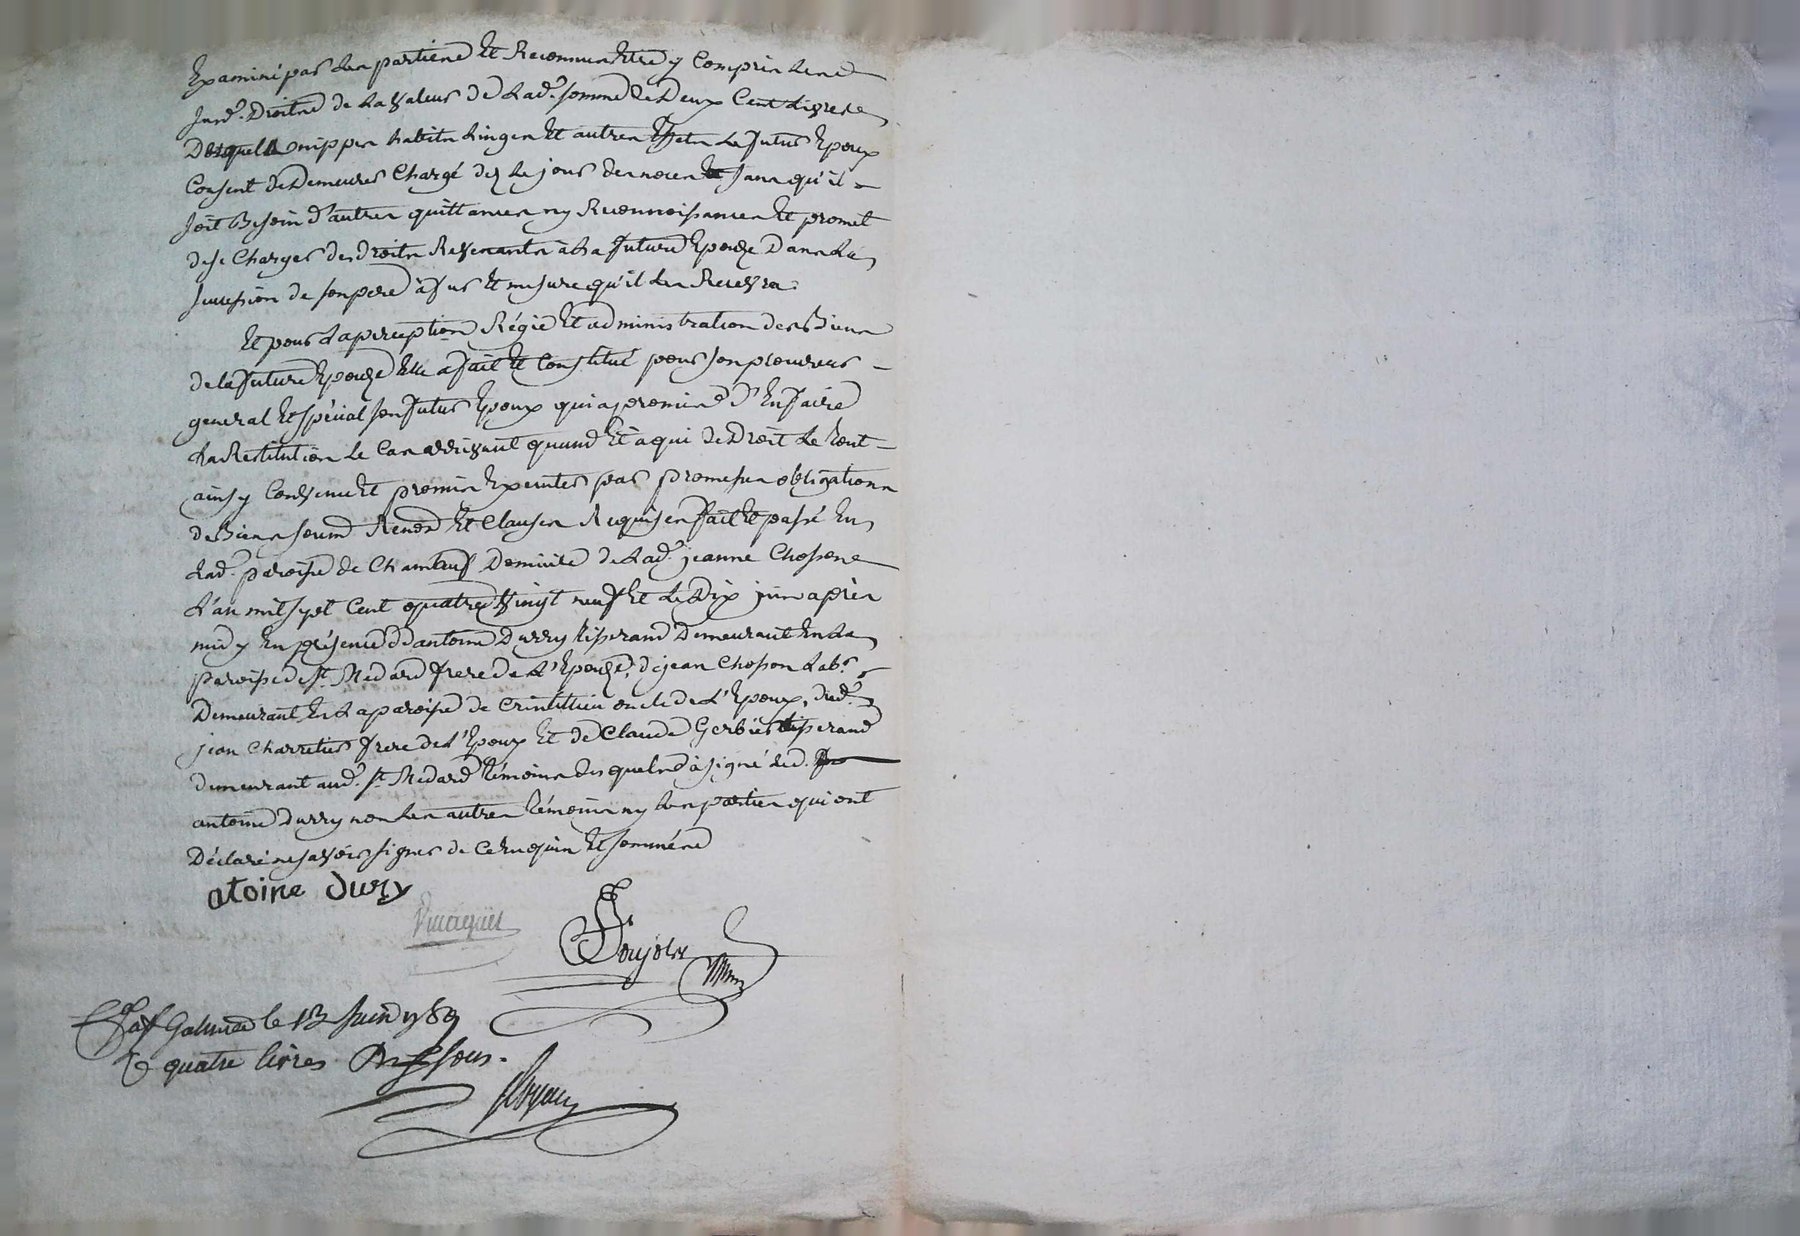 Examiné par les parties et Reconnu Etre y Compris lesd
Susd. Droits de la valeur de lad. somme de Deux Cent Livres
Desquels nippes habits Linges et autres Effets le futur Epoux
Consent de Demeurer Chargé dez le jour des noces sans qu'il
soit Besoin d'autres quittances ny Reconnoissances Et promet
de se Charger des droits Revenants à la future Epouze Dans la
succession de son pere à fur et mesure qu'il les Recevra.
Et pour la perception Régie Et administration des Biens
de la future Epouze Elle a fait Et Constitué pour son procureur
general Et spécial son futur Epoux qui a promis d'En faire
la Restitution le Cas arrivant quand Et à qui de Droit le tout
ainsy Convenu Et promis Executer par promesses obligations
de Biens soumis Renon Et Clauses Requises fait Et passé En
lad. paroisse de Chambeuf Domicile de lad. jeanne Chossone
L'an mil sept Cent quatre vingt neuf Et le Dix juin après
midy En présence d'antoine Durry tisserand Demeurant En la
paroisse de St. Medard frere de L'Epouze, de jean Chosson Labr.
Demeurant En la paroisse de Crintillieu oncle de L'Epoux, dud.
jean Charretier frere de L'Epoux Et de Claude Gerbier tisserand
demeurant aud. St. Médard témoins desquels à signé led.
antoine Durry non les autres témoins ny les parties qui ont
Déclaré ne savoir signer de ce Enquis Et sommés
atoine dury
Pujolx
a St Galmier le 13 Juin 1789
quatre livres Dix sous.